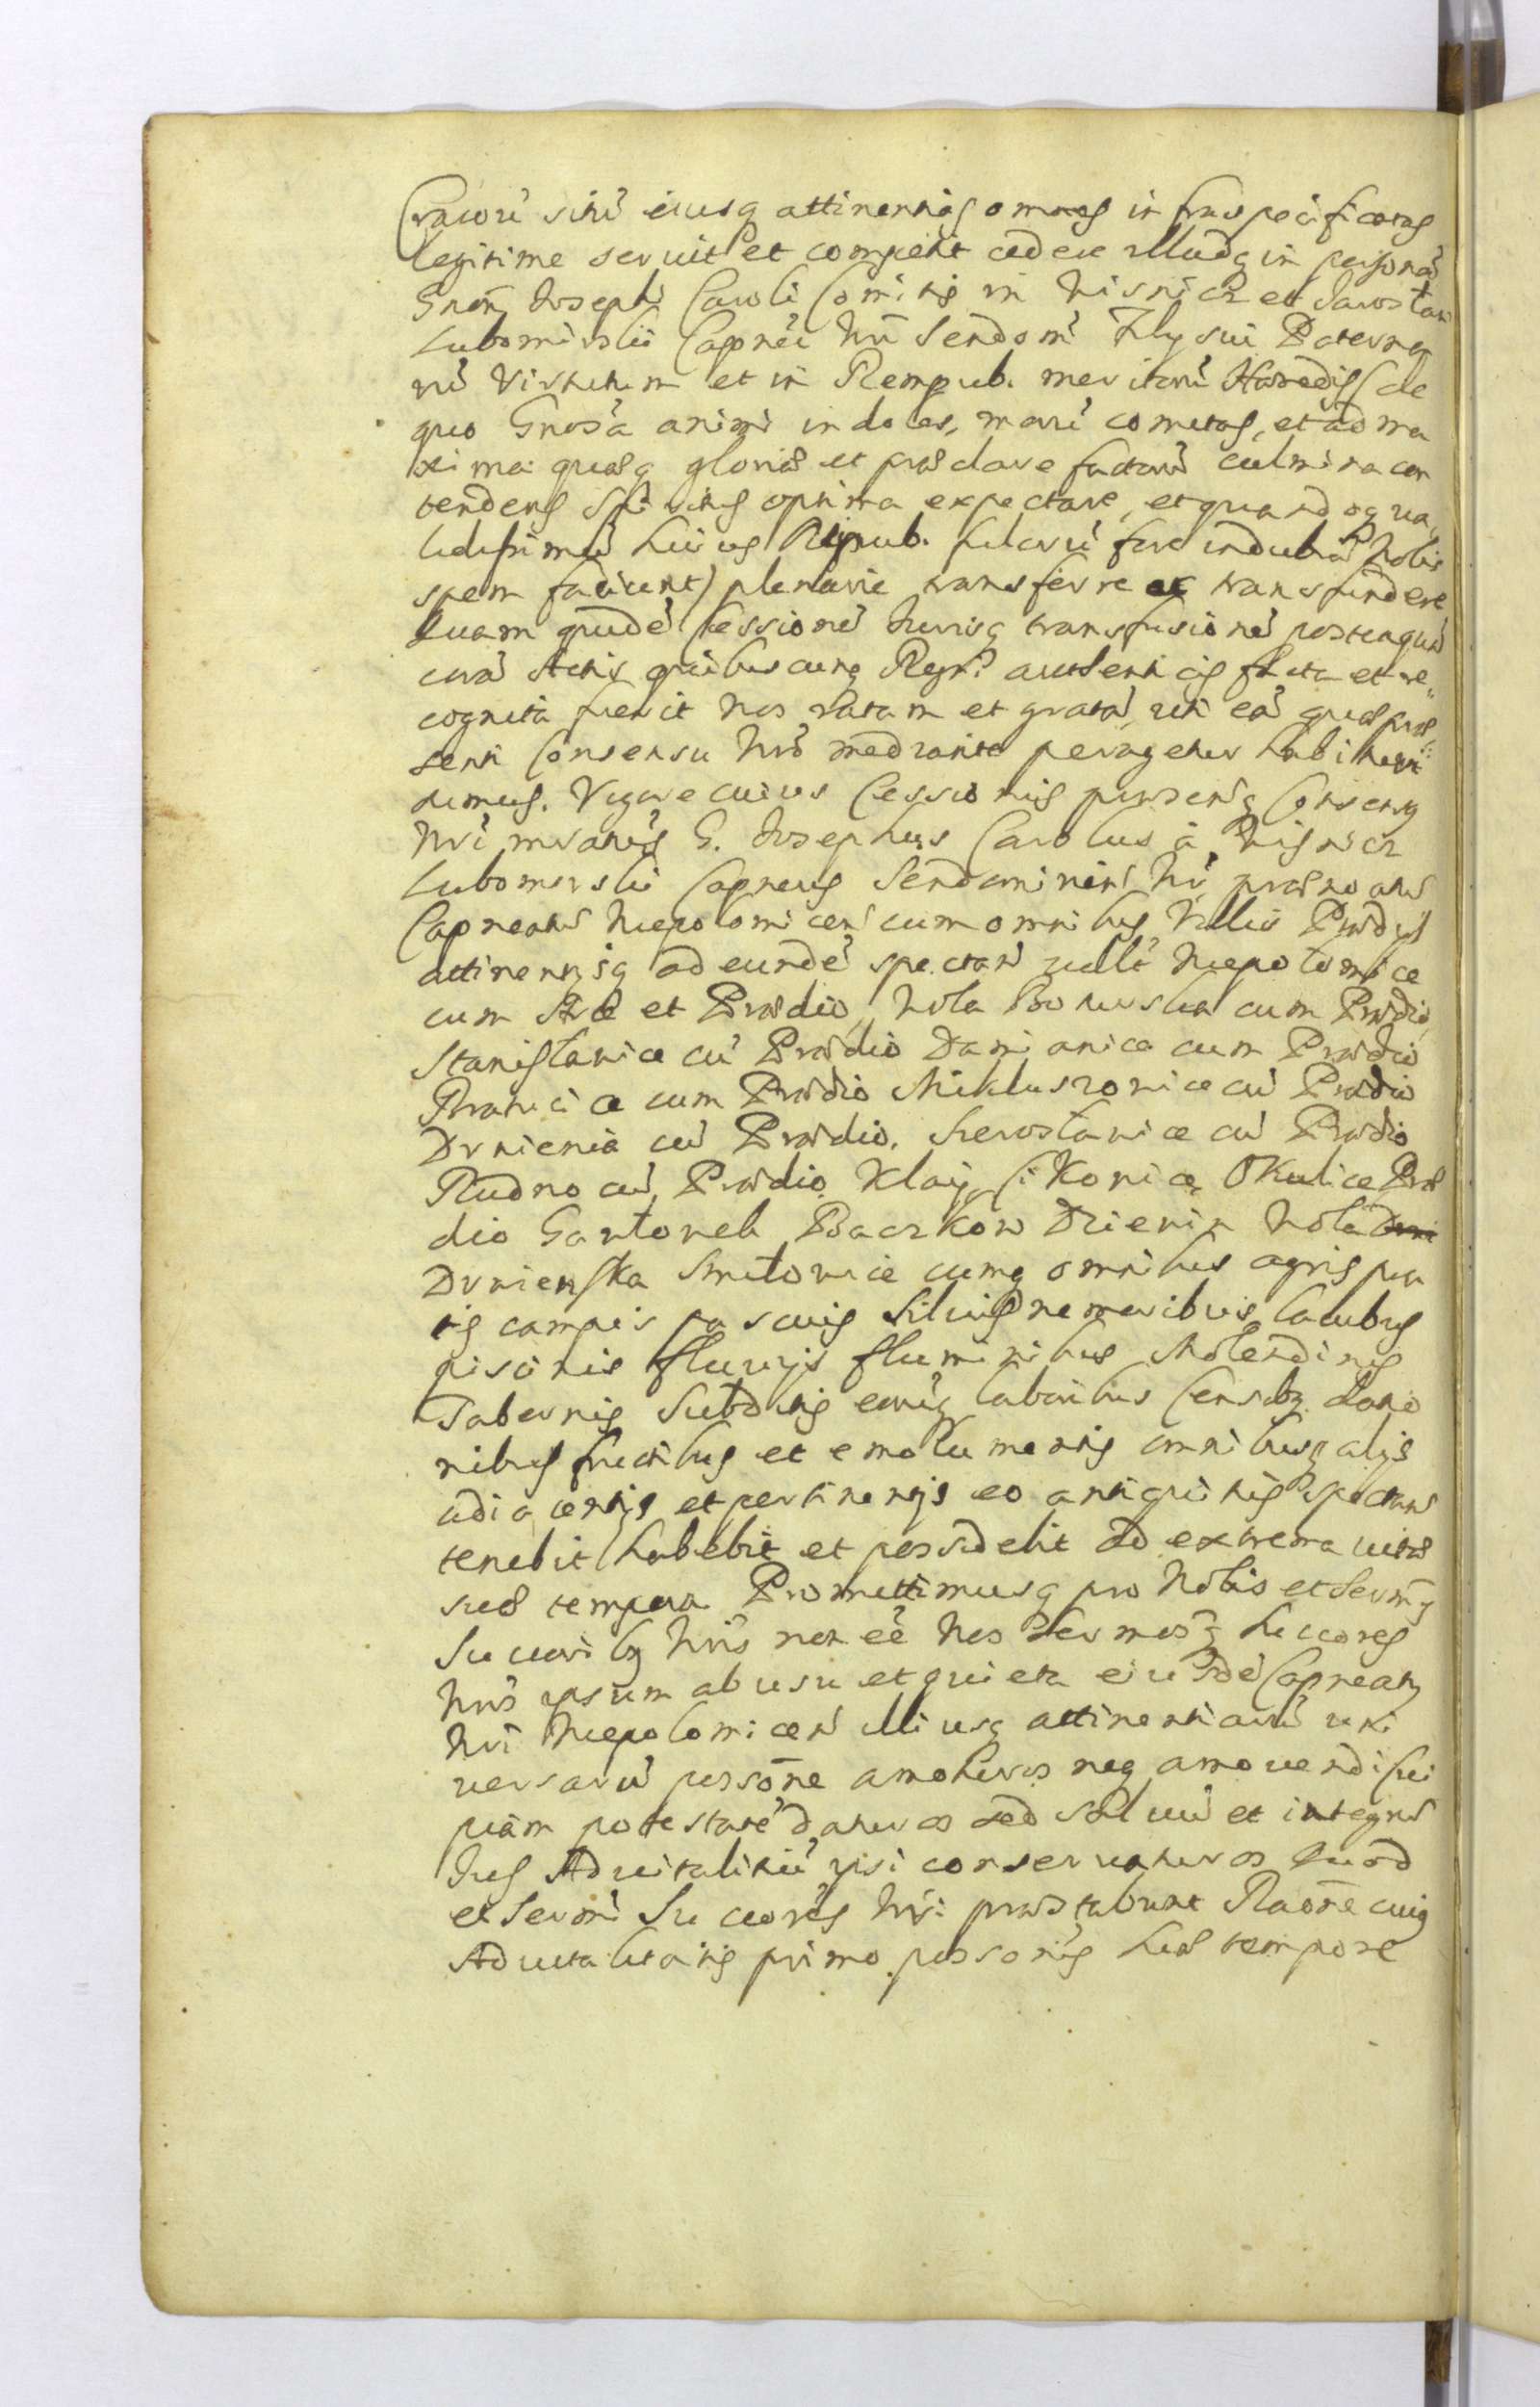 Cracou sitū eiusq attinentias omnes infraspecificatas
legitime servit et competit cedere illudq in personā
Gnon Josephi Caroli Comitis in Wisnicz et Jarosław
Lubomirski Capnei Nri Sendom Filij sui Paterna
rū Virtutum et in Rempub. meritorū Hæredis (de
quo Gnosa animi indoles, morū comitas, et ad ma
xima quæq gloriæ et præclare factorū culmina con
tendens Spiritus optima expectare, et quandoq va
lidissimū huius Reipub. futurū fore indubiā Nobis
spem faciunt) plenarie transferre ac transfundere
Quam quidē Cessionē Jurisq transfusionē posteaquā
corā Actis quibuscunq Regni autenticis facta et re
cognita fuerit Nos ratam et gratā uti eā quæ præ
senti Consensu Nro mediante peragetur habituri
sumus. Vigore cuius Cessionis præsentisq Consensq
Nri mvanis G. Josephus Carolus à Wisnicz
Lubomirski Capneus Sendomirien Nr prænoatus
Capneatus Niepolomicen cum omnibus Villis Prædijs
attinentijsq ad eundē spectan vidlt Niepolomice
cum Arce et Prædio, Wola Boturska cum Prædio
Stanisławice cū Prædio Damianice cum Prædio
Proszowice cum Prædio Mikluszowice cū Prædio
Drwienia cū Prædio. Sierosławice cū Prædio
Rudno cū Prædio Kłaj Cikowice Okulice Præ
dio Gawłowek Baczkow Dziewin Wola
Drwienska Smiłowice cumq omnibus agris pra
tis campis pascuis Silvis nemoribus lacubus
piscinis fluvijs fluminibus Molendinis
Tabernis Subditis eorūq laboribus Censibq Dano
nibus fructibus et emolumentis omnibusq alijs
adiacentijs et pertinentijs eo antiquitus spectans
tenebit habebit et possidebit ad extrema vitæ
suæ tempora Promittimusq pro Nobis et Sermis
Succoribq Nris non eē Nos Sermosq Succores
Nros ipsum ab usu et quieta eiusdē Capneatq
Nri Niepolomicen illiusq attinentiarū uni
versarū possone amoturos neq amovendi cui
piam potestatē daturos sed salvū et integrū
Jus Advitalitiū ipsi conservaturos Quod
et Sermi Succores Nri præstabunt Raone cuiq
Advitalitatis primo possonis suæ tempore